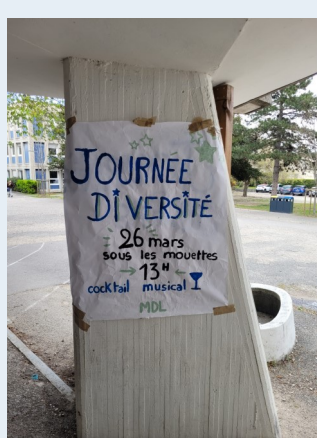 JOURNÉE
DIVERSITÉ
26 mars
sous les mouettes
→ 13H ←
cocktail musical
MDL